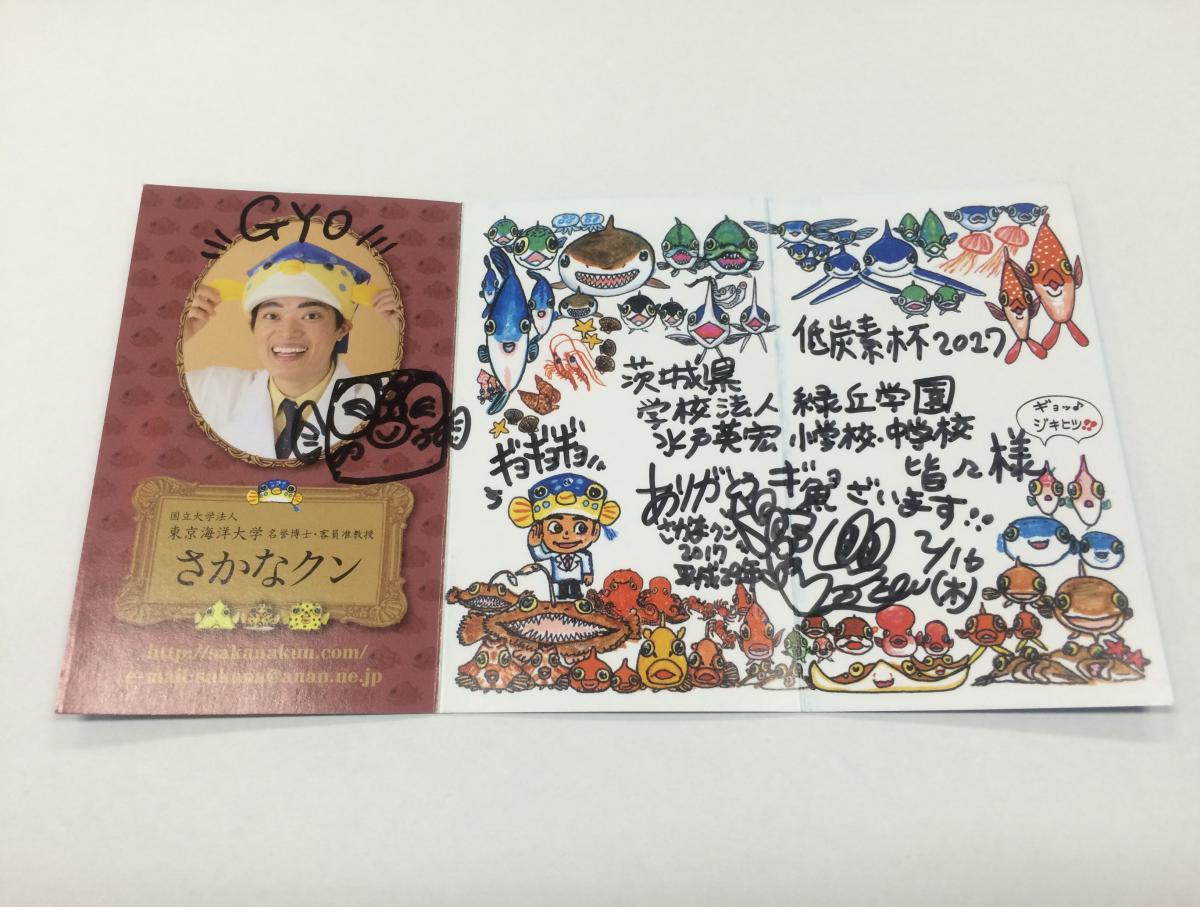 GYO
国立大学法人
東京海洋大学 名誉博士・客員准教授
さかなクン
http://sakanakun.com/
e-mail:sakana@anan.ne.jp
低炭素杯2017
茨城県
学校法人 緑丘学園
水戸英宏 小学校・中学校
皆々様
ギョギョギョッ
ありがとうギョざいます!!
さかなクン
2017
平成29年
2/16
(木)
ギョッ♪
ジキヒツ!!